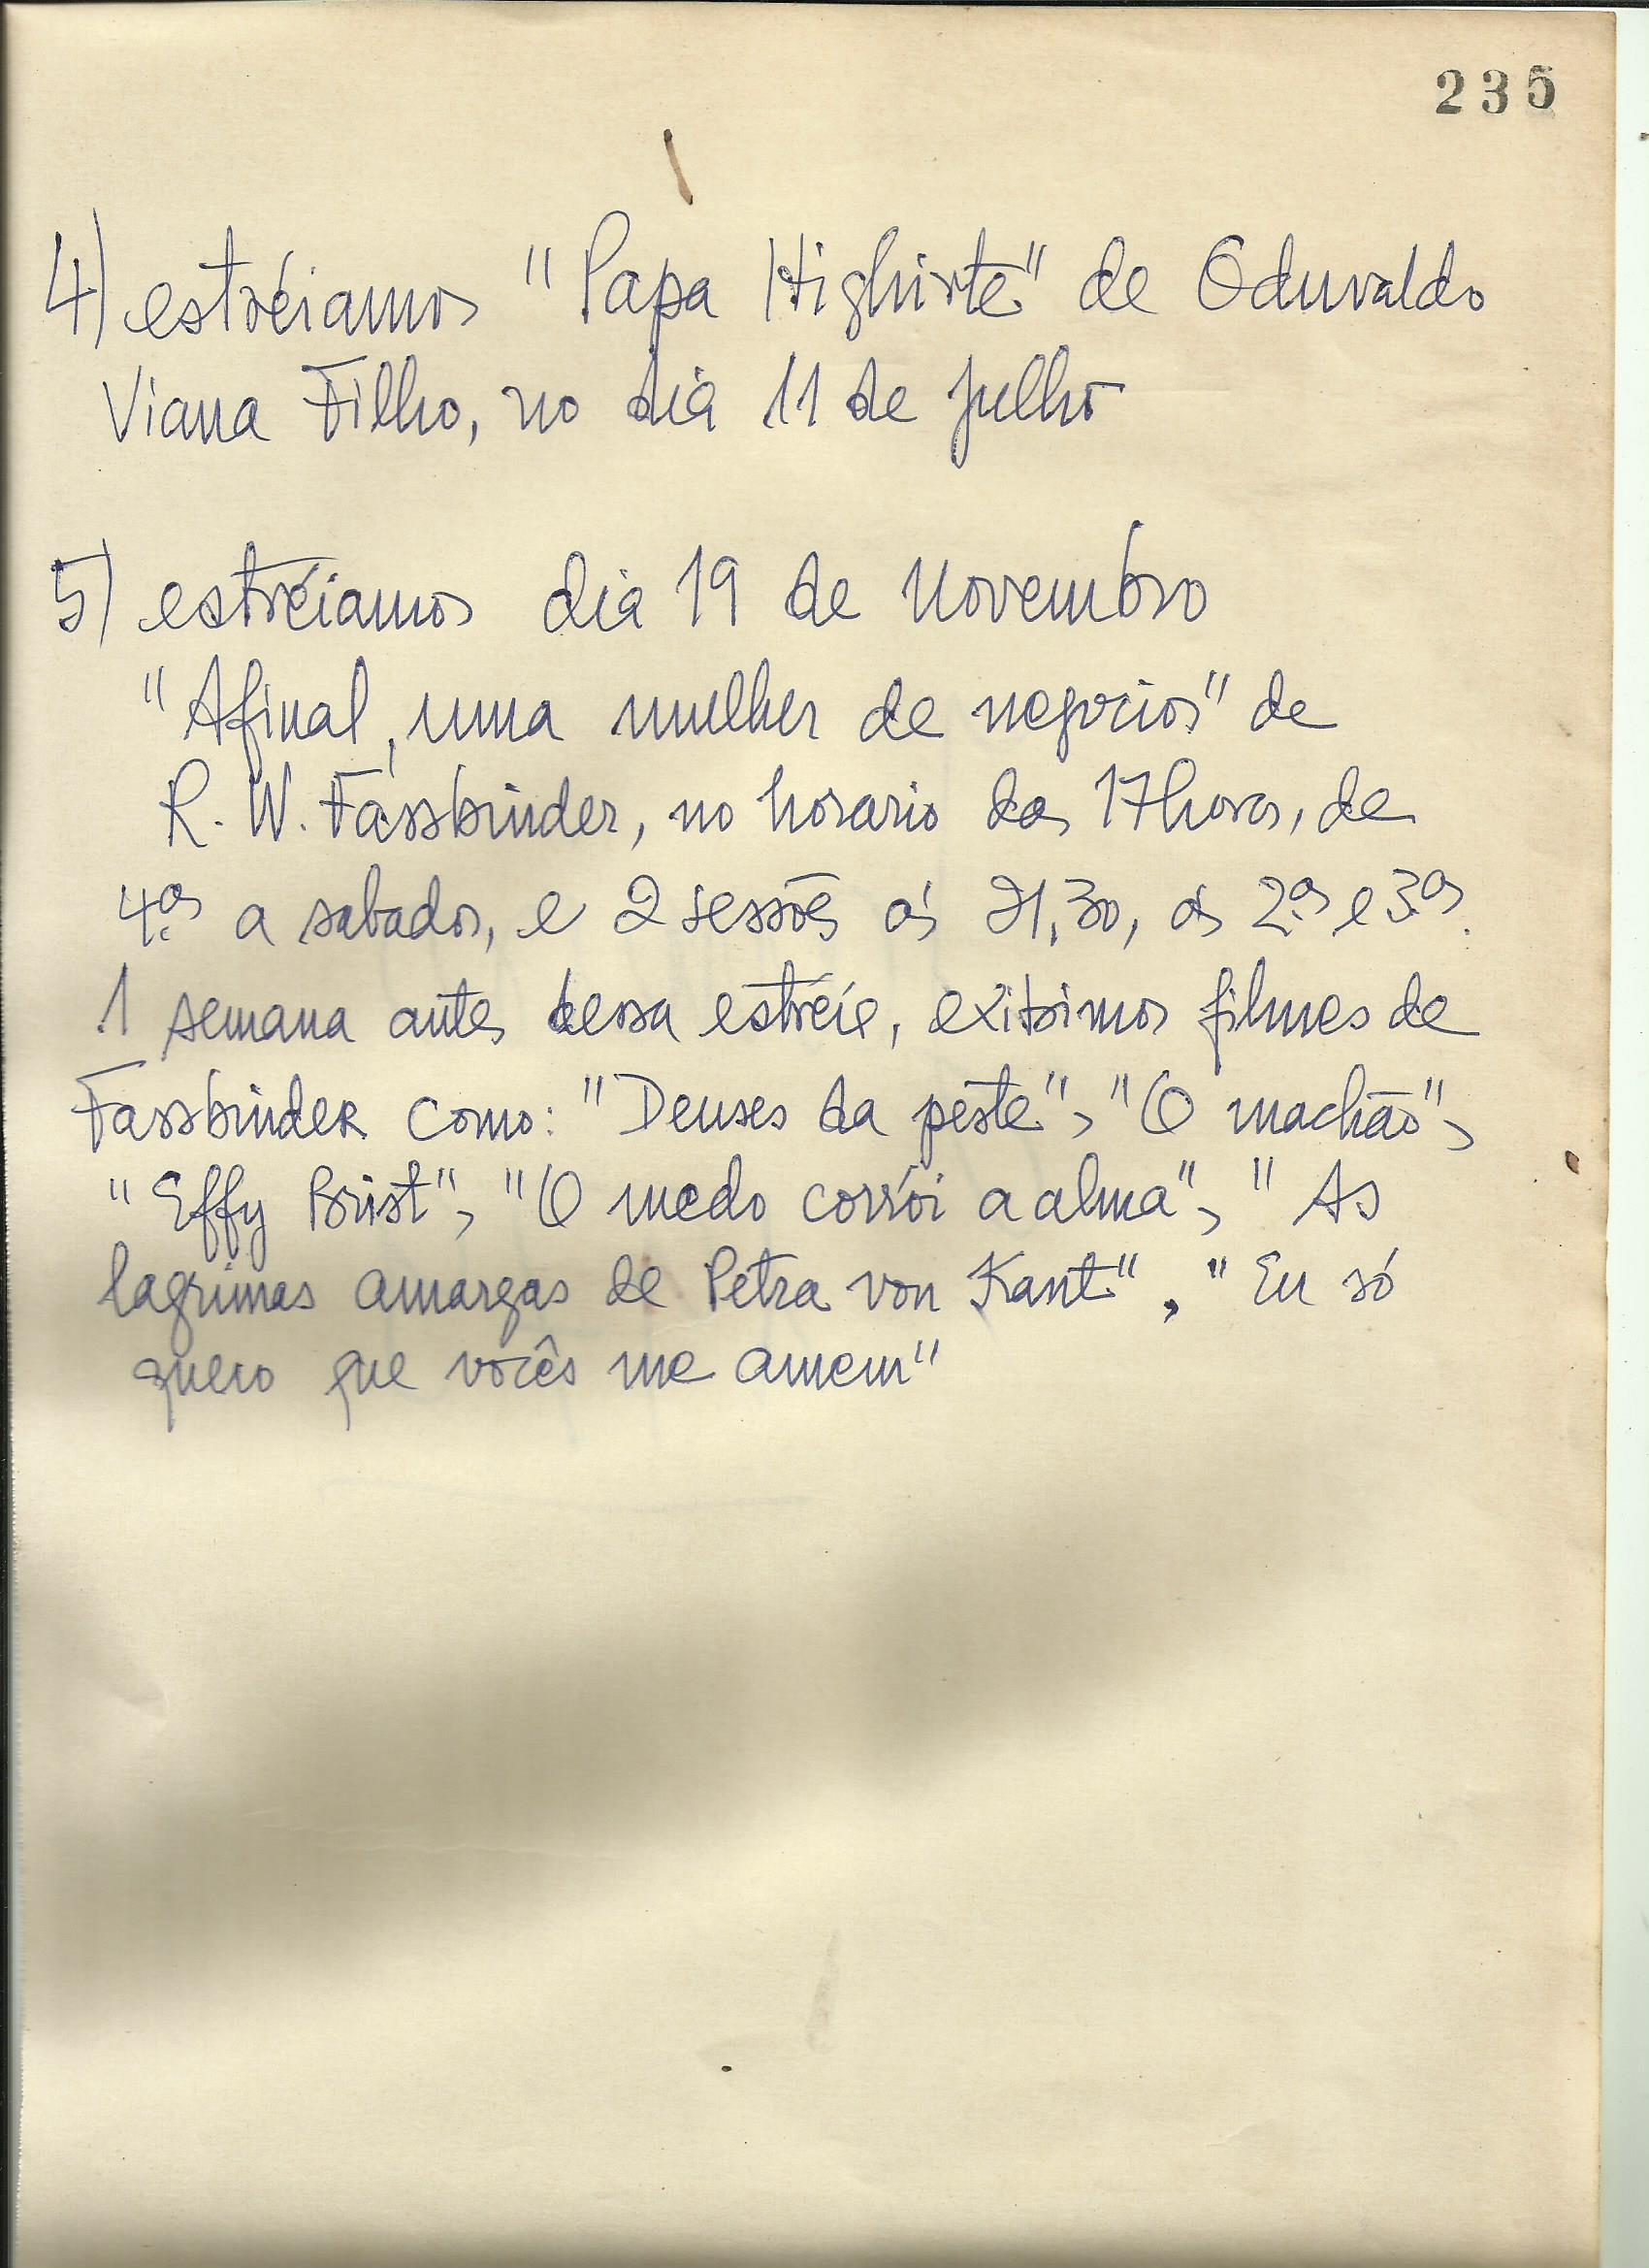 235
4) estréiamos "Papa Highirte" de Oduvaldo
Viana Filho, no dia 11 de julho
5) estréiamos dia 19 de novembro
"Afinal, uma mulher de negocios" de
R. W. Fassbinder, no horario das 17 horas, de
4.as a sabados, e 2 sessões às 21,30, às 2.as e 3.as.
1 semana antes dessa estréie, exibimos filmes de
Fassbinder como: "Deuses da peste", "O machão",
"Effy Brist", "O medo corrói a alma", "As
lagrimas amargas de Petra von Kant", "Eu só
quero que vocês me amem"